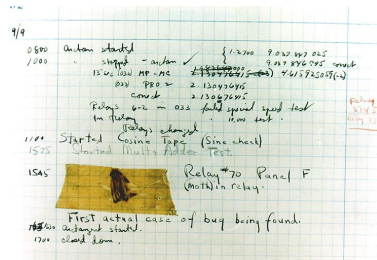 9/9
0800 antan started
1000 " stopped - antan ✓ { 1.2700 9.037 847 025
9.037 846 995 conect
13"sec (032) MP-MC 2.130476415 4.615925059(-2)
(033) PRO 2 2.130476415
conect 2.130676415
Relays 6-2 in 033 failed special speed test
in Relay " 10.000 test.
Relays changed
1100 Started Cosine Tape (Sine check)
1525 Started Multi Adder Test.
1545 Relay #70 Panel F
(Moth) in relay.
First actual case of bug being found.
antangent started.
1700 closed down.